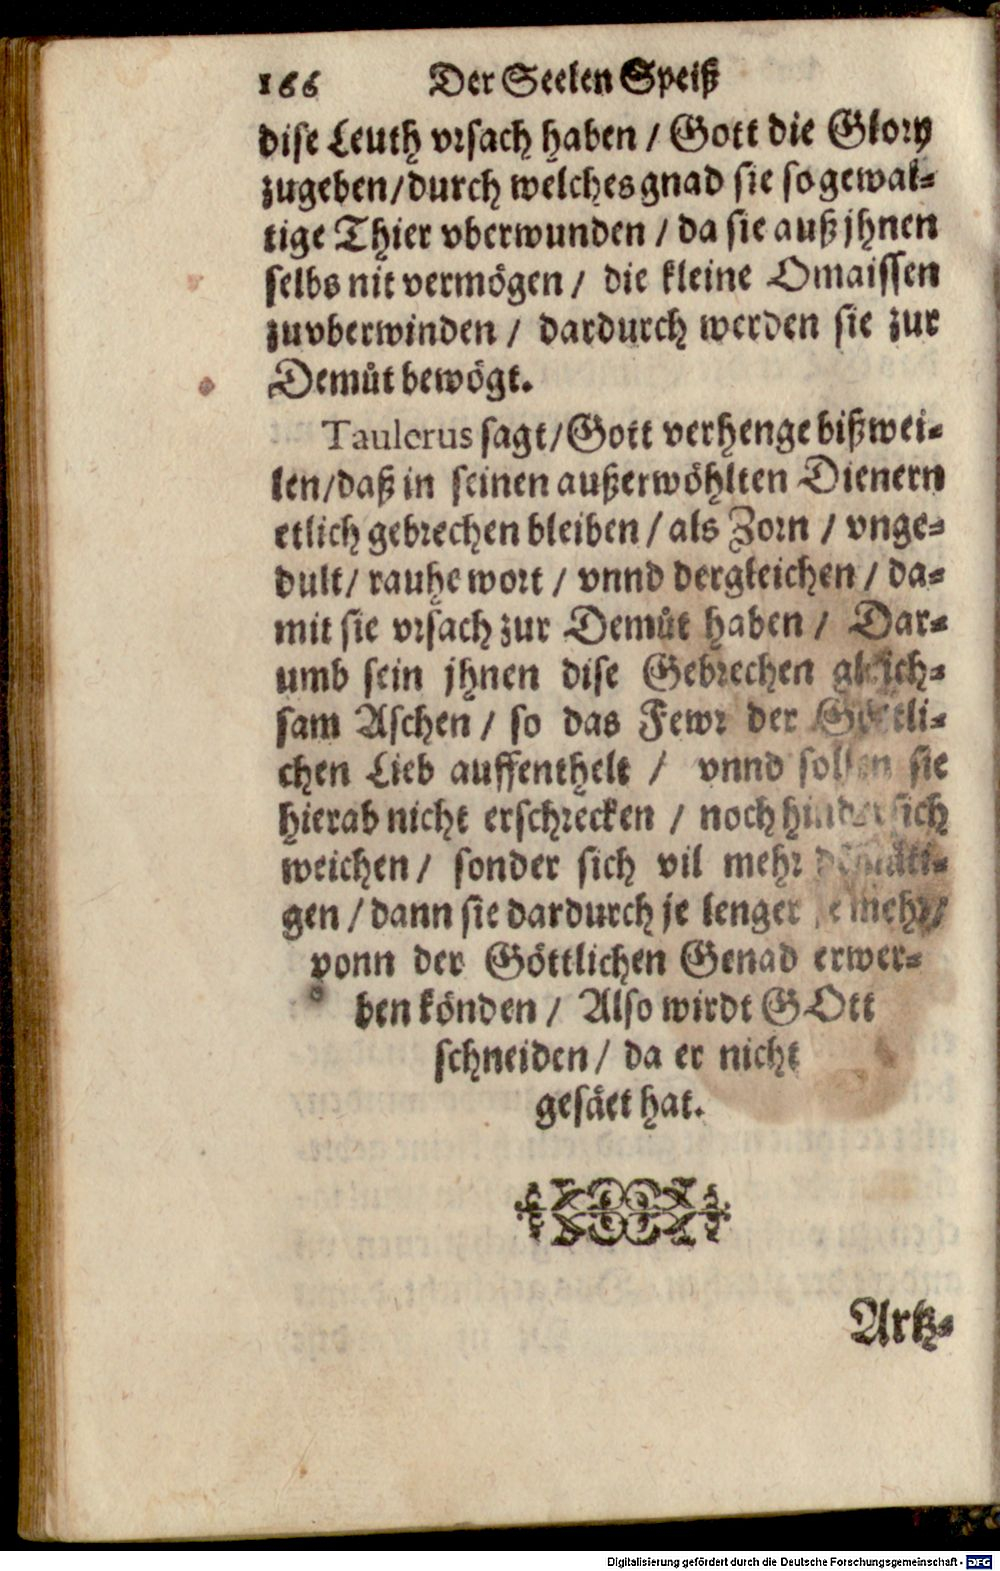 166 Der Seelen Speiß
dise Leuth vrsach haben / Gott die Glory
zugeben/durch welches gnad sie so gewal-
tige Thier vberwunden / da sie auß jhnen
selbs nit vermögen / die kleine Omaissen
zuvberwinden / dardurch werden sie zur
Demůt bewögt.
Taulerus sagt/Gott verhenge bißwei-
len/daß in seinen außerwöhlten Dienern
etlich gebrechen bleiben / als Zorn / vnge-
dult/ rauhe wort / vnnd dergleichen / da-
mit sie vrsach zur Demůt haben / Dar-
umb sein jhnen dise Gebrechen gleich-
sam Aschen / so das Fewr der Göttli-
chen Lieb auffenthelt / vnnd sollen sie
hierab nicht erschrecken / noch hindersich
weichen / sonder sich vil mehr demüti-
gen / dann sie dardurch je lenger je mehr/
vonn der Göttlichen Genad erwer-
ben könden / Also wirdt GOtt
schneiden / da er nicht
gesäet hat.
Artz-
Digitalisierung gefördert durch die Deutsche Forschungsgemeinschaft - DFG